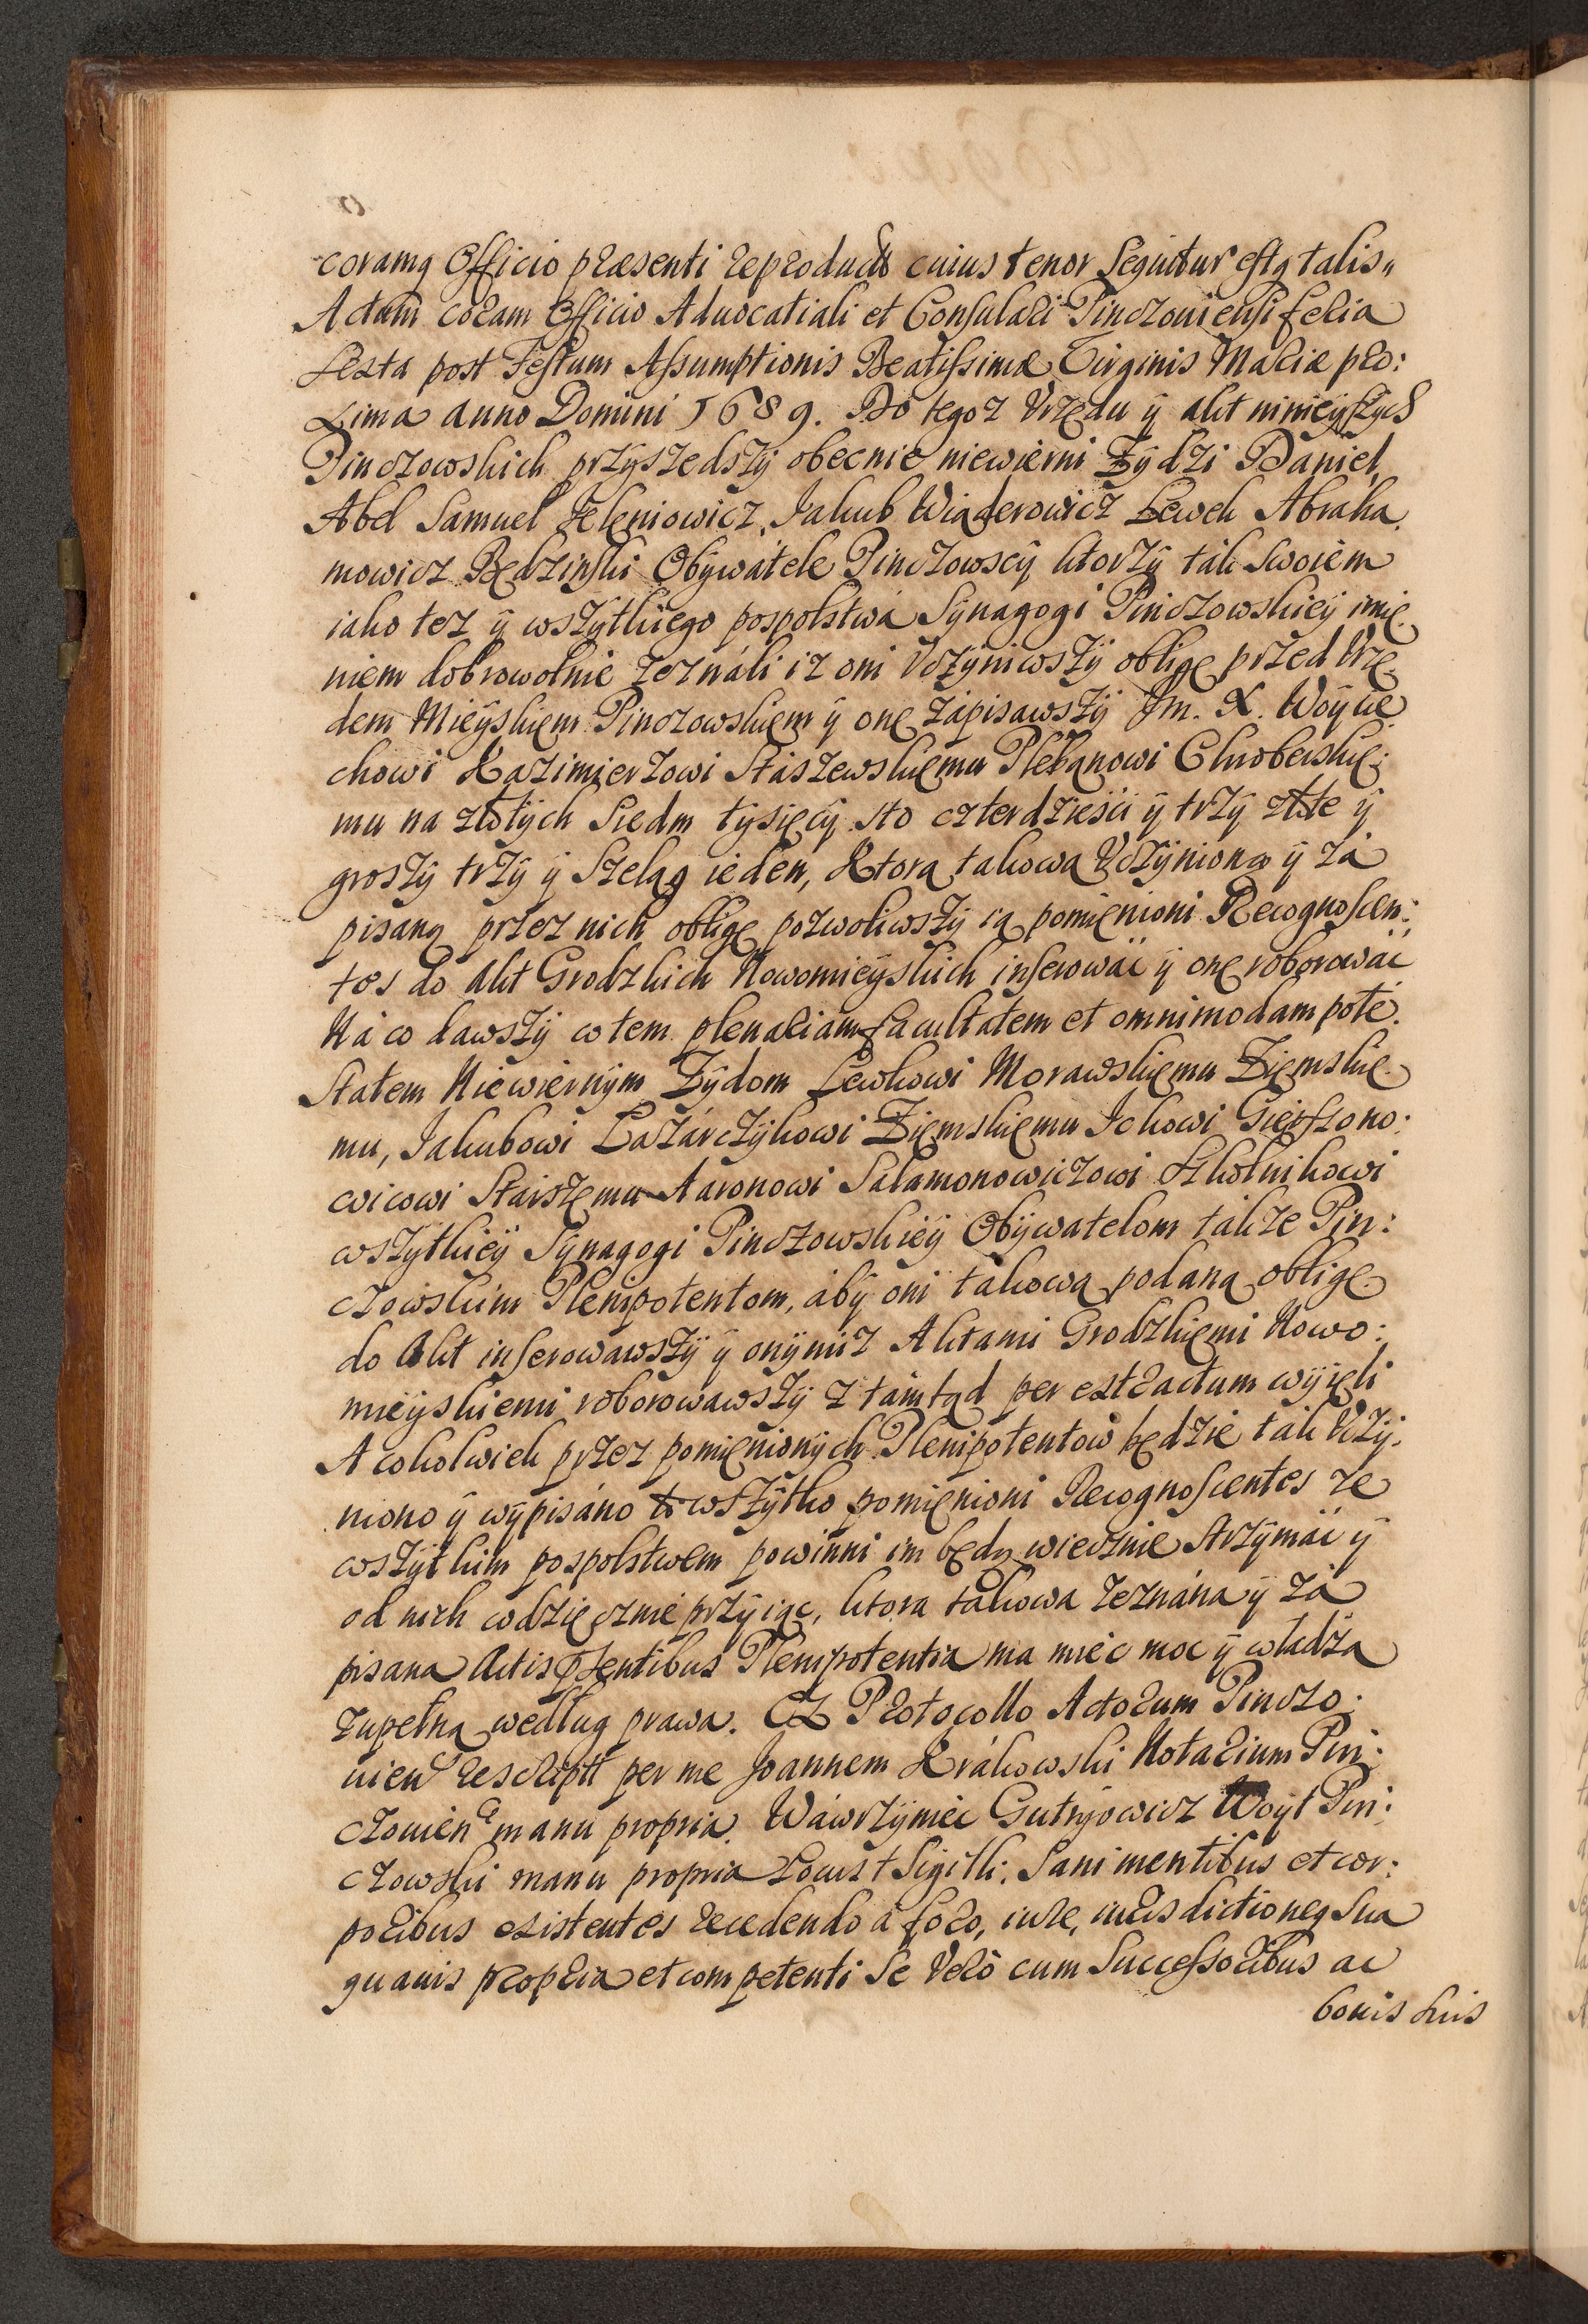 coramq Officio præsenti reproducto cuius tenor sequitur estq talis„
Actum coram Officio Aduocatiali et Consulari Pinczouiensi feria
sexta post Festum Assumptionis Beatissimæ Virginis Mariæ pro:
xima anno Domini 1689. Do tegoz Vrzędu ÿ akt ninieÿszÿch
Pinczowskich przÿszedszÿ obecnie niewierni Zÿdzi Daniel,
Abel Samuel Jeleniowicz, Jakub Wiaderowicz Lewek Abraha.
mowicz Będzinski Obÿwátele Pinczowscÿ ktorzÿ ták swoiem
iako tez ÿ wszÿtkiego pospolstwá Sÿnagogi Pinczowskieÿ imię.
niem dobrowolnie zeználi iz oni Vczÿniwszÿ obligę przed Vrzę
dem Mieÿskiem Pinczowskiem ÿ onę zápisawszÿ Jm. X. Woÿcie
chowi Kazimierzowi Stászewskiemu Plebanowi Chroberskie:
mu na złotÿch siedm tÿsięcÿ sto czterdzieści ÿ trzÿ złłte ÿ
groszÿ trzÿ ÿ szeląg ieden, Ktorą takową Vczÿnioną ÿ zá
pisaną przez nich obligę pozwoliwszÿ ią pomięnioni Recognoscen:
tes do Akt Grodzkich Nowomieÿskich inserowáć ÿ onę roborowáć
Ná co dawszÿ w tem plenariam facultatem et omnimodam pote.
statem Niewiernÿm Zÿdom Lewkowi Morawskiemu Ziemskie.
mu, Jakubowi Lazárczÿkowi Ziemskiemu Ickowi Gierszono:
wicowi Stárszemu Aaronowi Salamonowiczowi Szkolnikowi
wszÿtkieÿ Sÿnagogi Pinczowskieÿ Obÿwatelom tákze Pin:
czowskim Plenipotentom, ábÿ oni takową podaną obligę
do Akt inserowawszÿ ÿ onÿmiz Aktami Grodzkiemi Nowo:
mieÿskiemi roborowawszÿ z támtąd per extractum wÿięli
A cokolwiek przez pomięnionÿch Plenipotentow będzie ták Vczÿ.
niono ÿ wÿpisáno to wszÿtko pomięnioni Recognoscentes ze
wszÿtkim pospolstwem powinni im będą wiecznie strzÿmáć ÿ
od nich wdzięcznie przÿiąc, ktora tákowa zeznána ÿ zá
pisana Actis pntibus Plenipotentia ma mieć moc ÿ władzą
zupełną według prawa. Ex Protocollo Actorum Pinczo:
uien rescriptt per me Joannem Krákowski Notarium Pin:
czouien manu propria. Wáwrzÿniec Gutrÿowicz Woÿt Pin:
czowski manu propria Locus † Sigilli. Sani mentibus et cor:
poribus existentes recedendo á foro, iure, iurisdictioneq sua
quauis propria et competenti se Verò cum Successoribus ac
bonis suis